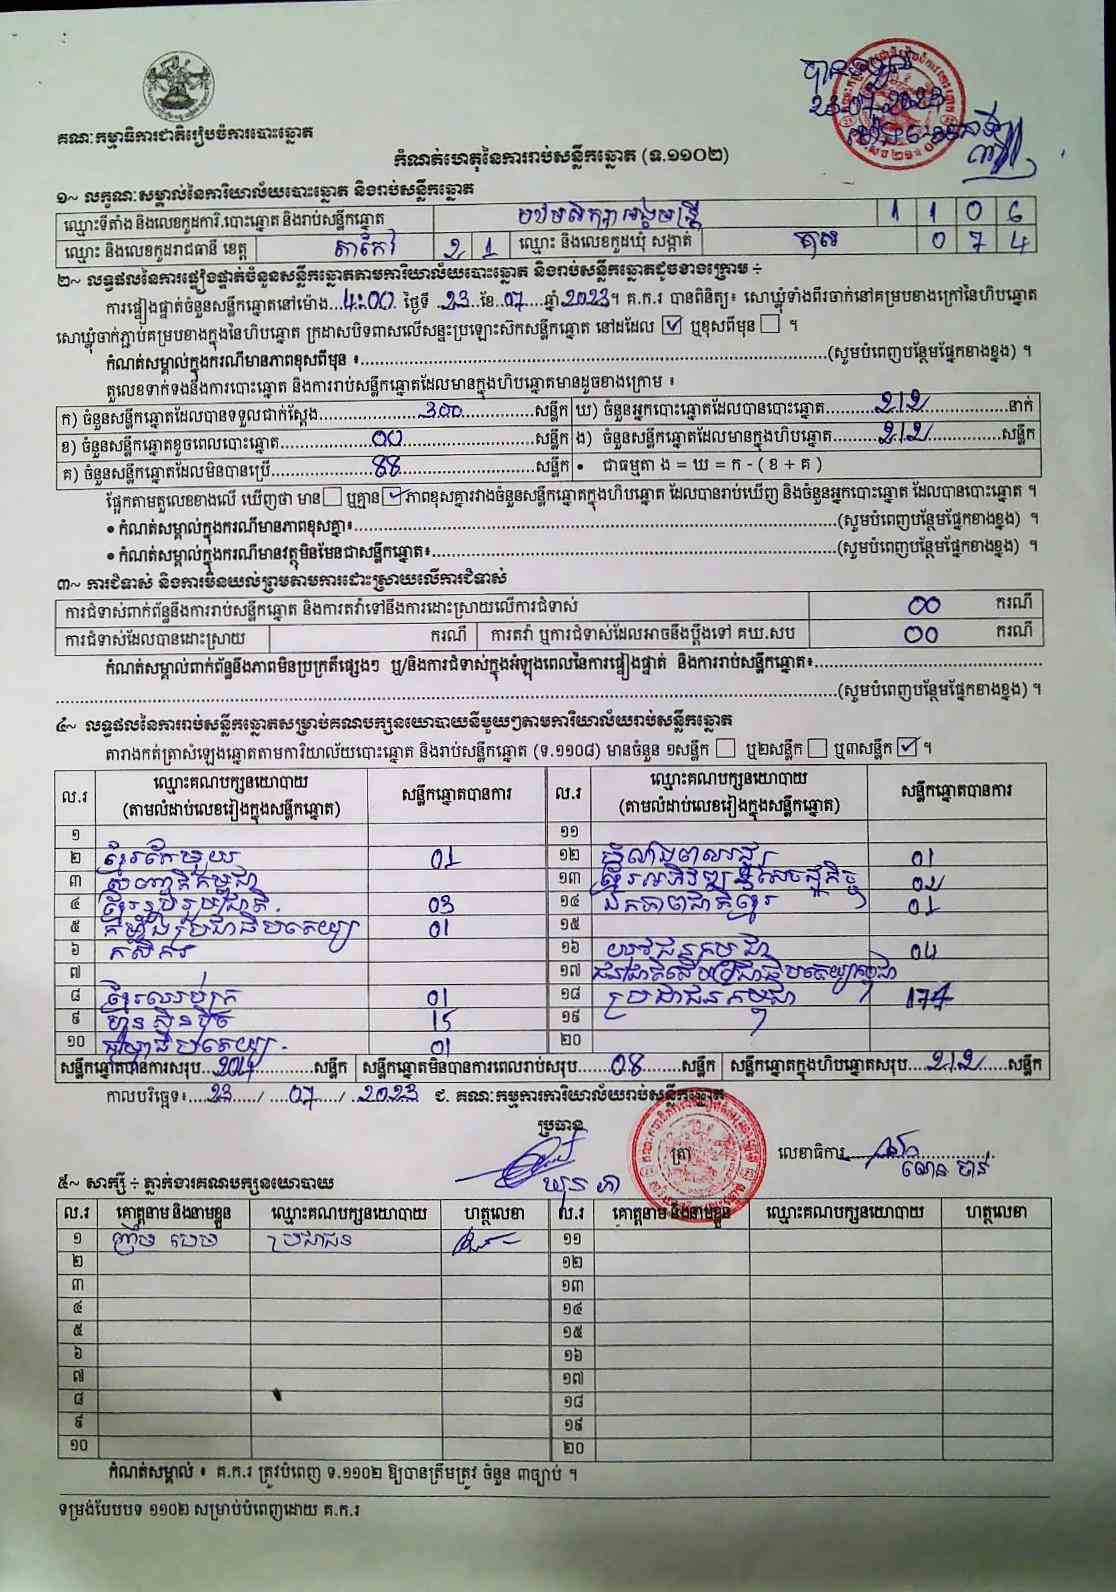 គណៈកម្មាធិការជាតិរៀបចំការបោះឆ្នោត
23-07-2023
កំណត់ហេតុនៃការរាប់សន្លឹកឆ្នោត (ទ.១១០២)
១~ លក្ខណៈសម្គាល់នៃការិយាល័យបោះឆ្នោត និងរាប់សន្លឹកឆ្នោត
ឈ្មោះទីតាំង និងលេខកូដការិ.បោះឆ្នោត និងរាប់សន្លឹកឆ្នោត បឋមសិក្សា 1 1 0 6
ឈ្មោះ និងលេខកូដរាជធានី ខេត្ត តាកែវ 2 1 ឈ្មោះ និងលេខកូដឃុំ សង្កាត់ 0 7 4
២~ លទ្ធផលនៃការផ្ទៀងផ្ទាត់ចំនួនសន្លឹកឆ្នោតតាមការិយាល័យបោះឆ្នោត និងរាប់សន្លឹកឆ្នោតដូចខាងក្រោម ÷
ការផ្ទៀងផ្ទាត់ចំនួនសន្លឹកឆ្នោតនៅម៉ោង..4:00..ថ្ងៃទី..23..ខែ..07..ឆ្នាំ2023។ គ.ក.រ បានពិនិត្យ៖ សោឃ្លុំទាំងពីរចាក់នៅគម្របខាងក្រៅនៃហិបឆ្នោត
សោឃ្លុំចាក់ភ្ជាប់គម្របខាងក្នុងនៃហិបឆ្នោត ក្រដាសបិទពាសលើសន្ទះប្រឡោះស៊កសន្លឹកឆ្នោត នៅដដែល ☑ ឬខុសពីមុន ☐ ។
កំណត់សម្គាល់ក្នុងករណីមានភាពខុសពីមុន ៖......(សូមបំពេញបន្ថែមផ្នែកខាងខ្នង) ។
តួលេខទាក់ទងនឹងការបោះឆ្នោត និងការរាប់សន្លឹកឆ្នោតដែលមានក្នុងហិបឆ្នោតមានដូចខាងក្រោម ៖
ក) ចំនួនសន្លឹកឆ្នោតដែលបានទទួលជាក់ស្តែង......300......សន្លឹក ឃ) ចំនួនអ្នកបោះឆ្នោតដែលបានបោះឆ្នោត......212......នាក់
ខ) ចំនួនសន្លឹកឆ្នោតខូចពេលបោះឆ្នោត......00......សន្លឹក ង) ចំនួនសន្លឹកឆ្នោតដែលមានក្នុងហិបឆ្នោត......212......សន្លឹក
គ) ចំនួនសន្លឹកឆ្នោតដែលមិនបានប្រើ......88......សន្លឹក • ជាធម្មតា ង = ឃ = ក - ( ខ + គ )
ផ្អែកតាមតួលេខខាងលើ ឃើញថា មាន ☐ ឬគ្មាន ☑ ភាពខុសគ្នារវាងចំនួនសន្លឹកឆ្នោតក្នុងហិបឆ្នោត ដែលបានរាប់ឃើញ និងចំនួនអ្នកបោះឆ្នោត ដែលបានបោះឆ្នោត ។
• កំណត់សម្គាល់ក្នុងករណីមានភាពខុសគ្នា៖......(សូមបំពេញបន្ថែមផ្នែកខាងខ្នង) ។
• កំណត់សម្គាល់ក្នុងករណីមានវត្ថុមិនមែនជាសន្លឹកឆ្នោត៖......(សូមបំពេញបន្ថែមផ្នែកខាងខ្នង) ។
៣~ ការជំទាស់ និងការមិនយល់ព្រមតាមការដោះស្រាយលើការជំទាស់
ការជំទាស់ពាក់ព័ន្ធនឹងការរាប់សន្លឹកឆ្នោត និងការតវ៉ាទៅនឹងការដោះស្រាយលើការជំទាស់ 00 ករណី
ការជំទាស់ដែលបានដោះស្រាយ ករណី ការតវ៉ា ឬការជំទាស់ដែលអាចនឹងប្តឹងទៅ គឃ.សប 00 ករណី
កំណត់សម្គាល់ពាក់ព័ន្ធនឹងភាពមិនប្រក្រតីផ្សេងៗ ឬ/និងការជំទាស់ក្នុងអំឡុងពេលនៃការផ្ទៀងផ្ទាត់ និងការរាប់សន្លឹកឆ្នោត៖......
......(សូមបំពេញបន្ថែមផ្នែកខាងខ្នង) ។
៤~ លទ្ធផលនៃការរាប់សន្លឹកឆ្នោតសម្រាប់គណបក្សនយោបាយនីមួយៗតាមការិយាល័យរាប់សន្លឹកឆ្នោត
តារាងកត់ត្រាសំឡេងឆ្នោតតាមការិយាល័យបោះឆ្នោត និងរាប់សន្លឹកឆ្នោត (ទ.១១០៨) មានចំនួន ១សន្លឹក ☐ ឬ២សន្លឹក ☐ ឬ៣សន្លឹក ☑ ។
ល.រ ឈ្មោះគណបក្សនយោបាយ (តាមលំដាប់លេខរៀងក្នុងសន្លឹកឆ្នោត) សន្លឹកឆ្នោតបានការ ល.រ ឈ្មោះគណបក្សនយោបាយ (តាមលំដាប់លេខរៀងក្នុងសន្លឹកឆ្នោត) សន្លឹកឆ្នោតបានការ
១ ១១
២ ខ្មែរតែមួយ 01 ១២ 01
៣ សញ្ជាតិកម្ពុជា ១៣ ខ្មែរអភិវឌ្ឍន៍សេដ្ឋកិច្ច 02
៤ ខ្មែររួបរួមជាតិ 03 ១៤ ឯកភាពជាតិខ្មែរ 01
៥ កម្លាំងប្រជាធិបតេយ្យ 01 ១៥
៦ កសិករ ១៦ យុវជនកម្ពុជា 04
៧ ១៧
៨ ខ្មែរឈប់ក្រ 01 ១៨ ប្រជាជនកម្ពុជា 174
៩ ហ៊្វុនស៊ិនប៉ិច 15 ១៩
១០ ធម្មាធិបតេយ្យ 01 ២០
សន្លឹកឆ្នោតបានការសរុប..204......សន្លឹក សន្លឹកឆ្នោតមិនបានការពេលរាប់សរុប......08......សន្លឹក សន្លឹកឆ្នោតក្នុងហិបឆ្នោតសរុប....212......សន្លឹក
កាលបរិច្ឆេទ៖....23..../....07..../..2023 ជ. គណៈកម្មការការិយាល័យរាប់សន្លឹកឆ្នោត
ប្រធាន ត្រា លេខាធិការ
៥~ សាក្សី ÷ ភ្នាក់ងារគណបក្សនយោបាយ
ល.រ គោត្តនាម និងនាមខ្លួន ឈ្មោះគណបក្សនយោបាយ ហត្ថលេខា ល.រ គោត្តនាម និងនាមខ្លួន ឈ្មោះគណបក្សនយោបាយ ហត្ថលេខា
១ ប្រជាជន ១១
២ ១២
៣ ១៣
៤ ១៤
៥ ១៥
៦ ១៦
៧ ១៧
៨ ១៨
៩ ១៩
១០ ២០
កំណត់សម្គាល់ ៖ គ.ក.រ ត្រូវបំពេញ ទ.១១០២ ឱ្យបានត្រឹមត្រូវ ចំនួន ៣ច្បាប់ ។
ទម្រង់បែបបទ ១១០២ សម្រាប់បំពេញដោយ គ.ក.រ